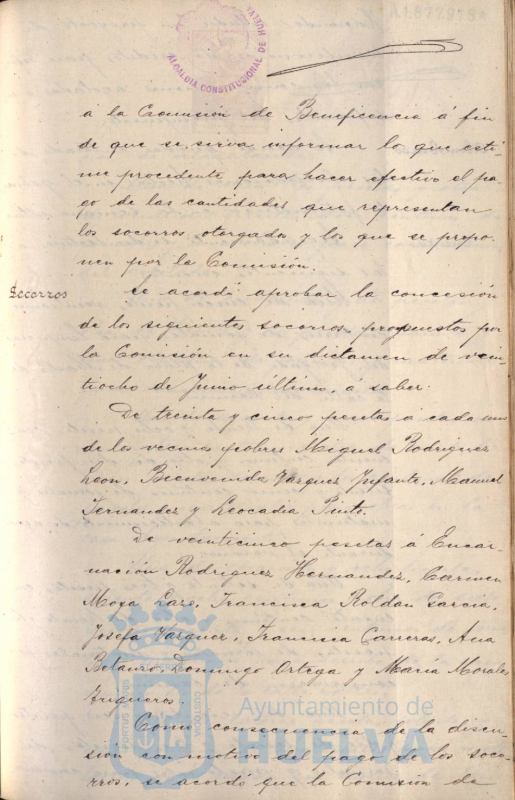 A1872918A
ALCALDIA CONSTITUCIONAL DE HUELVA
á la Comisión de Beneficencia á fin
de que se sirva informar lo que esti-
me procedente para hacer efectivo el pa-
go de las cantidades que representan
los socorros otorgados y los que se propo-
nen por la Comisión.
Socorros
Se acordó aprobar la concesión
de los siguientes socorros propuestos por
la Comisión en su dictamen de vein-
tiocho de Junio último, á saber:
De treinta y cinco pesetas á cada uno
de los vecinos pobres Miguel Rodriguez
Leon, Bienvenida Vazquez Infante, Manuel
Fernandez y Leocadia Pinto.
De veinticinco pesetas á Encar-
nación Rodriguez Hernandez, Carmen
Moya Lazo, Francisca Roldan Garcia,
Josefa Vazquez, Francisca Carreras, Ana
Domingo Ortega y María Morales
Trigueros.
Como consecuencia de la discu-
sión con motivo del pago de los soco-
rros, se acordó que la Comisión de
Ayuntamiento de
HUELVA